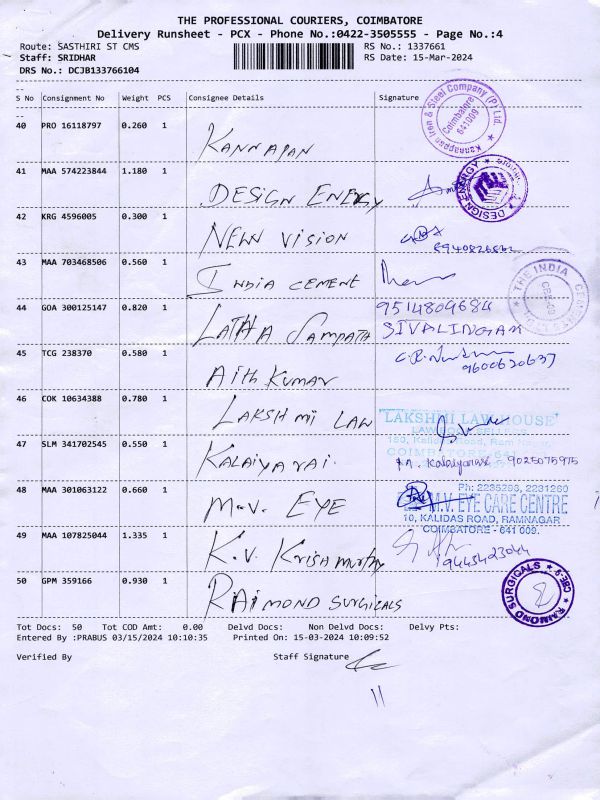 THE PROFESSIONAL COURIERS, COIMBATORE
Delivery Runsheet - PCX - Phone No.:0422-3505555 - Page No.:4
Route: SASTHIRI ST CMS RS No.: 1337661
Staff: SRIDHAR RS Date: 15-Mar-2024
DRS No.: DCJB133766104
S No Consignment No Weight PCS Consignee Details Signature
Kannappan Iron & Steel Company (P) Ltd.
Coimbatore 641009
40 PRO 16118797 0.260 1 KANNAPAN
41 MAA 574223844 1.180 1 DESIGN ENERGY
DESIGN ENERGY
42 KRG 4596005 0.300 1 NEW VISION
43 MAA 703468506 0.560 1 INDIA CEMENT
THE INDIA CEMENTS
44 GOA 300125147 0.820 1 LATHA SAMPATH 9514809684
SIVALINGAM
45 TCG 238370 0.580 1 AJITH KUMAR 9600620637
46 COK 10634388 0.780 1 LAKSHMI LAW
"LAKSHMI LAW HOUSE"
LAW BOOK SELLERS
COIMBATORE-641
47 SLM 341702545 0.550 1 KALAIYARAI 9025075975
48 MAA 301063122 0.660 1 M.V. EYE
Ph: 2235293, 2231280
M.V. EYE CARE CENTRE
10, KALIDAS ROAD, RAMNAGAR
COIMBATORE - 641 009.
49 MAA 107825044 1.335 1 K.V. Krishmurthy 9445423044
50 GPM 359166 0.930 1 RAIMOND SURGICALS
RAIMOND SURGICALS CBE-9
Tot Docs: 50 Tot COD Amt: 0.00 Delvd Docs: Non Delvd Docs: Delvy Pts:
Entered By :PRABUS 03/15/2024 10:10:35 Printed On: 15-03-2024 10:09:52
Verified By Staff Signature